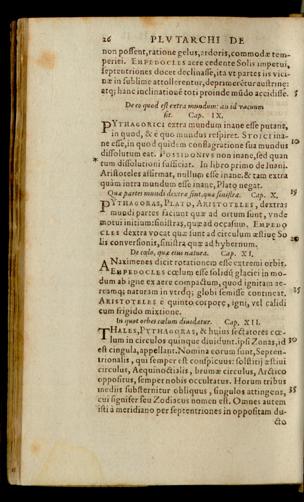 26 PLVTARCHI DE
non possent, ratione gelus, ardoris, commodæ tem-
periei. EMPEDOCLES aere cedente Solis impetui,
septentriones docet declinasse, ita vt partes iis vici-
næ in sublime attollerentur, deprimerẽtur austrinę:
atq; hanc inclinationẽ toti proinde mũdo accidisse. 5
De eo quod est extra mundum: an id vacuum
sit. Cap. IX.
PYTHAGORICI extra mundum inane esse putant,
in quod, & è quo mundus respiret. STOICI ina-
ne esse, in quod quidem conflagratione sua mundus
dissolutum eat. POSIDONIVS non inane, sed quan
* tum dissolutioni sufficiat. In libro primo de Inani.
Aristoteles affirmat, nullum esse inane. & tam extra
quàm intra mundum esse inane, Plato negat.
Quæ partes mundi dextræ sint, quæ sinistræ. Cap. X. 15
PYTHAGORAS, PLATO, ARISTOTELES, dextras
mundi partes faciunt quæ ad ortum sunt, vnde
motui initium: sinistras, quæ ad occasum. EMPEDO
CLES dextra vocat quæ sunt ad circulum æstiuę So
lis conuersionis, sinistra quæ ad hybernum. 20
De cœlo, quæ eius natura. Cap. XI.
ANaximenes dicit rotationem esse extremi orbis.
EMPEDOCLES cœlum esse solidũ glaciei in mo-
dum ab igne ex aere compactum, quod igneam ae-
reamq; naturam in vtroq; globi semisse contineat. 25
ARISTOTELES è quinto corpore, igni, vel calidi
cum frigido mixtione.
In quot orbes cœlum diuidatur. Cap. XII.
THALES, PYTHAGORAS, & huius sectatores cœ-
lum in circulos quinque diuidunt. ipsi Zonas, id 30
est cingula, appellant. Nomina eorum sunt, Septen-
trionalis, qui semper est conspicuus: solstitij æstiui
circulus, Aequinoctialis, brumæ circulus, Arctico
oppositus, semper nobis occultatus. Horum tribus
mediis substernitur obliquus, singulos attingens, 35
cui signifer seu Zodiacus nomen est. Omnes autem
isti à meridiano per septentriones in oppositam du-
cto